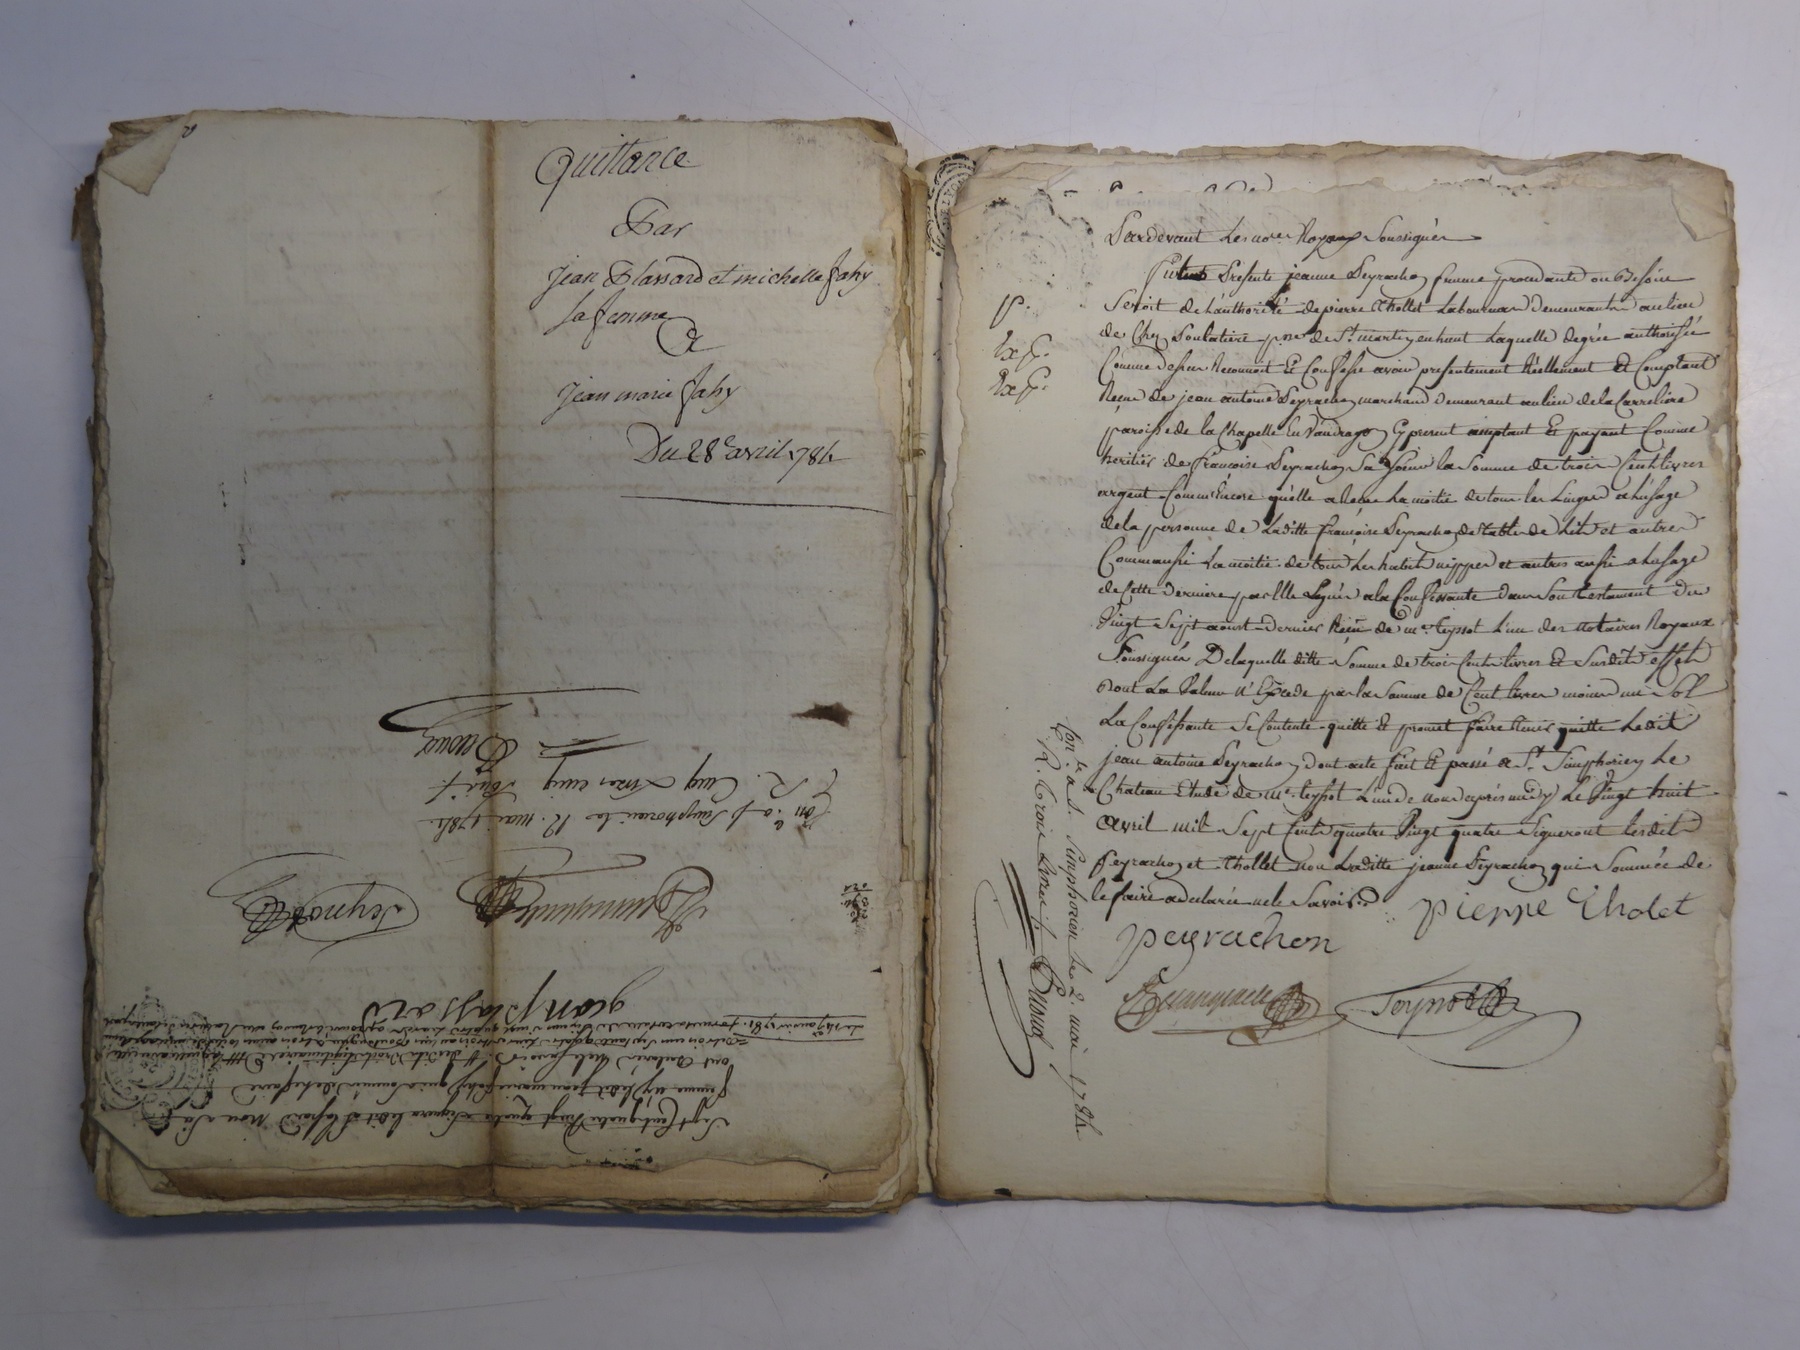 Quittance
Par
jean Plassard et michelle Fahy
sa femme
A
jean marie Fahy
Du 28e avril 1784
Sept Cent quatre Vingt quatre Signera ledit Plassard Non Sa
femme ny ledit jean marie Fahy qui Sommés de le faire
ont declaré ne le Savoir
gian plassard
Teyssot
Con.lé a St Simphorien le 12. mai 1784.
R. Cinq livres cinq sous
Pardevant Les nores Royaux Soussignés
Fut Presente jeanne Peyrachon femme procedante ou Besoin
P.
Seroit de L'authorité de pierre Thollet Laboureur Demeurants au lieu
de Chez Soulative psse de St martin en haut Laquelle degré authorisée
Exp.
Comme dessus Reconnoit Et Confesse avoir presentement Réellement Et Comptant
Exp.
Recue de jean antoine Peyrachon marchand Demeurant au lieu de la Carreliere
paroisse de la Chapelle En Vaudragon Cy present acceptant Et payant Comme
heritier de francoise Peyrachon Sa Soeur la Somme de trois Cent livres
argent Comme Encore qu'elle a Recue La moitié de tous les Linges a L'usage
de la personne de Laditte françoise Peyrachon de table de Lit et autres
Comm'aussi La moitié de tous Les habits nippes et autres aussi a Lusage
de Cette derniere par Elle Legués a la Confessante dans Son testament du
Vingt Sept aoust Dernier Reçu de me teyssot L'un des notaires Royaux
Soussignés De laquelle ditte Somme de trois Cents livres Et Susdits effets
Dont La Valeur N'Excede pas la Somme de Cent livres moins un Sol
La Confessante Se Contente quitte Et promet faire tenir quitte Ledit
jean antoine Peyrachon, dont acte fait Et passé a St Simphorien Le
Chateau Etude de me teyssot L'un de nous après midy Le Vingt huit
avril mil Sept Cents quatre Vingt quatre Signeront lesdits
Peyrachon et Thollet non Laditte jeanne Peyrachon qui Sommée de
le faire a declaré ne le Savoir
pierre tholet
peyrachon
Teyssot
Con.lé a St. Simphorien le 2. mai 1784.
R. trois livres